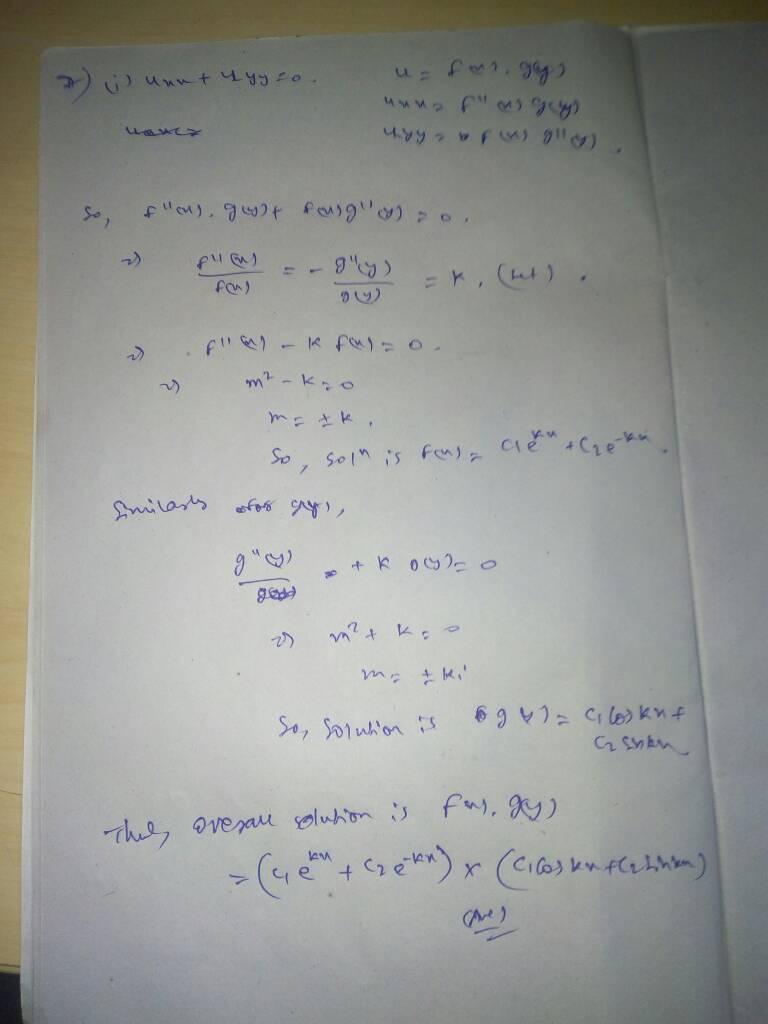 (i) uxx + uyy = 0.
u = f(x). g(y)
uxx = f''(x) g(y)
uyy = f(x) g''(y).
So, f''(x). g(y) + f(x) g''(y) = 0.
=> f''(x)/f(x) = - g''(y)/g(y) = K, (let).
=> f''(x) - K f(x) = 0.
=> m² - K = 0
m = ± K.
So, solⁿ is f(x) = C₁e^kx + C₂e^-kx.
Similarly for g(y),
g''(y) + K g(y) = 0
=> m² + K = 0
m = ± Ki
So, solution is g(y) = C₁ Cos kx +
C₂ Sinkx
Thus, overall solution is f(x). g(y)
= (C₁e^kx + C₂e^-kx) × (C₁Cos kx + C₂Sinkx)
(Ans)